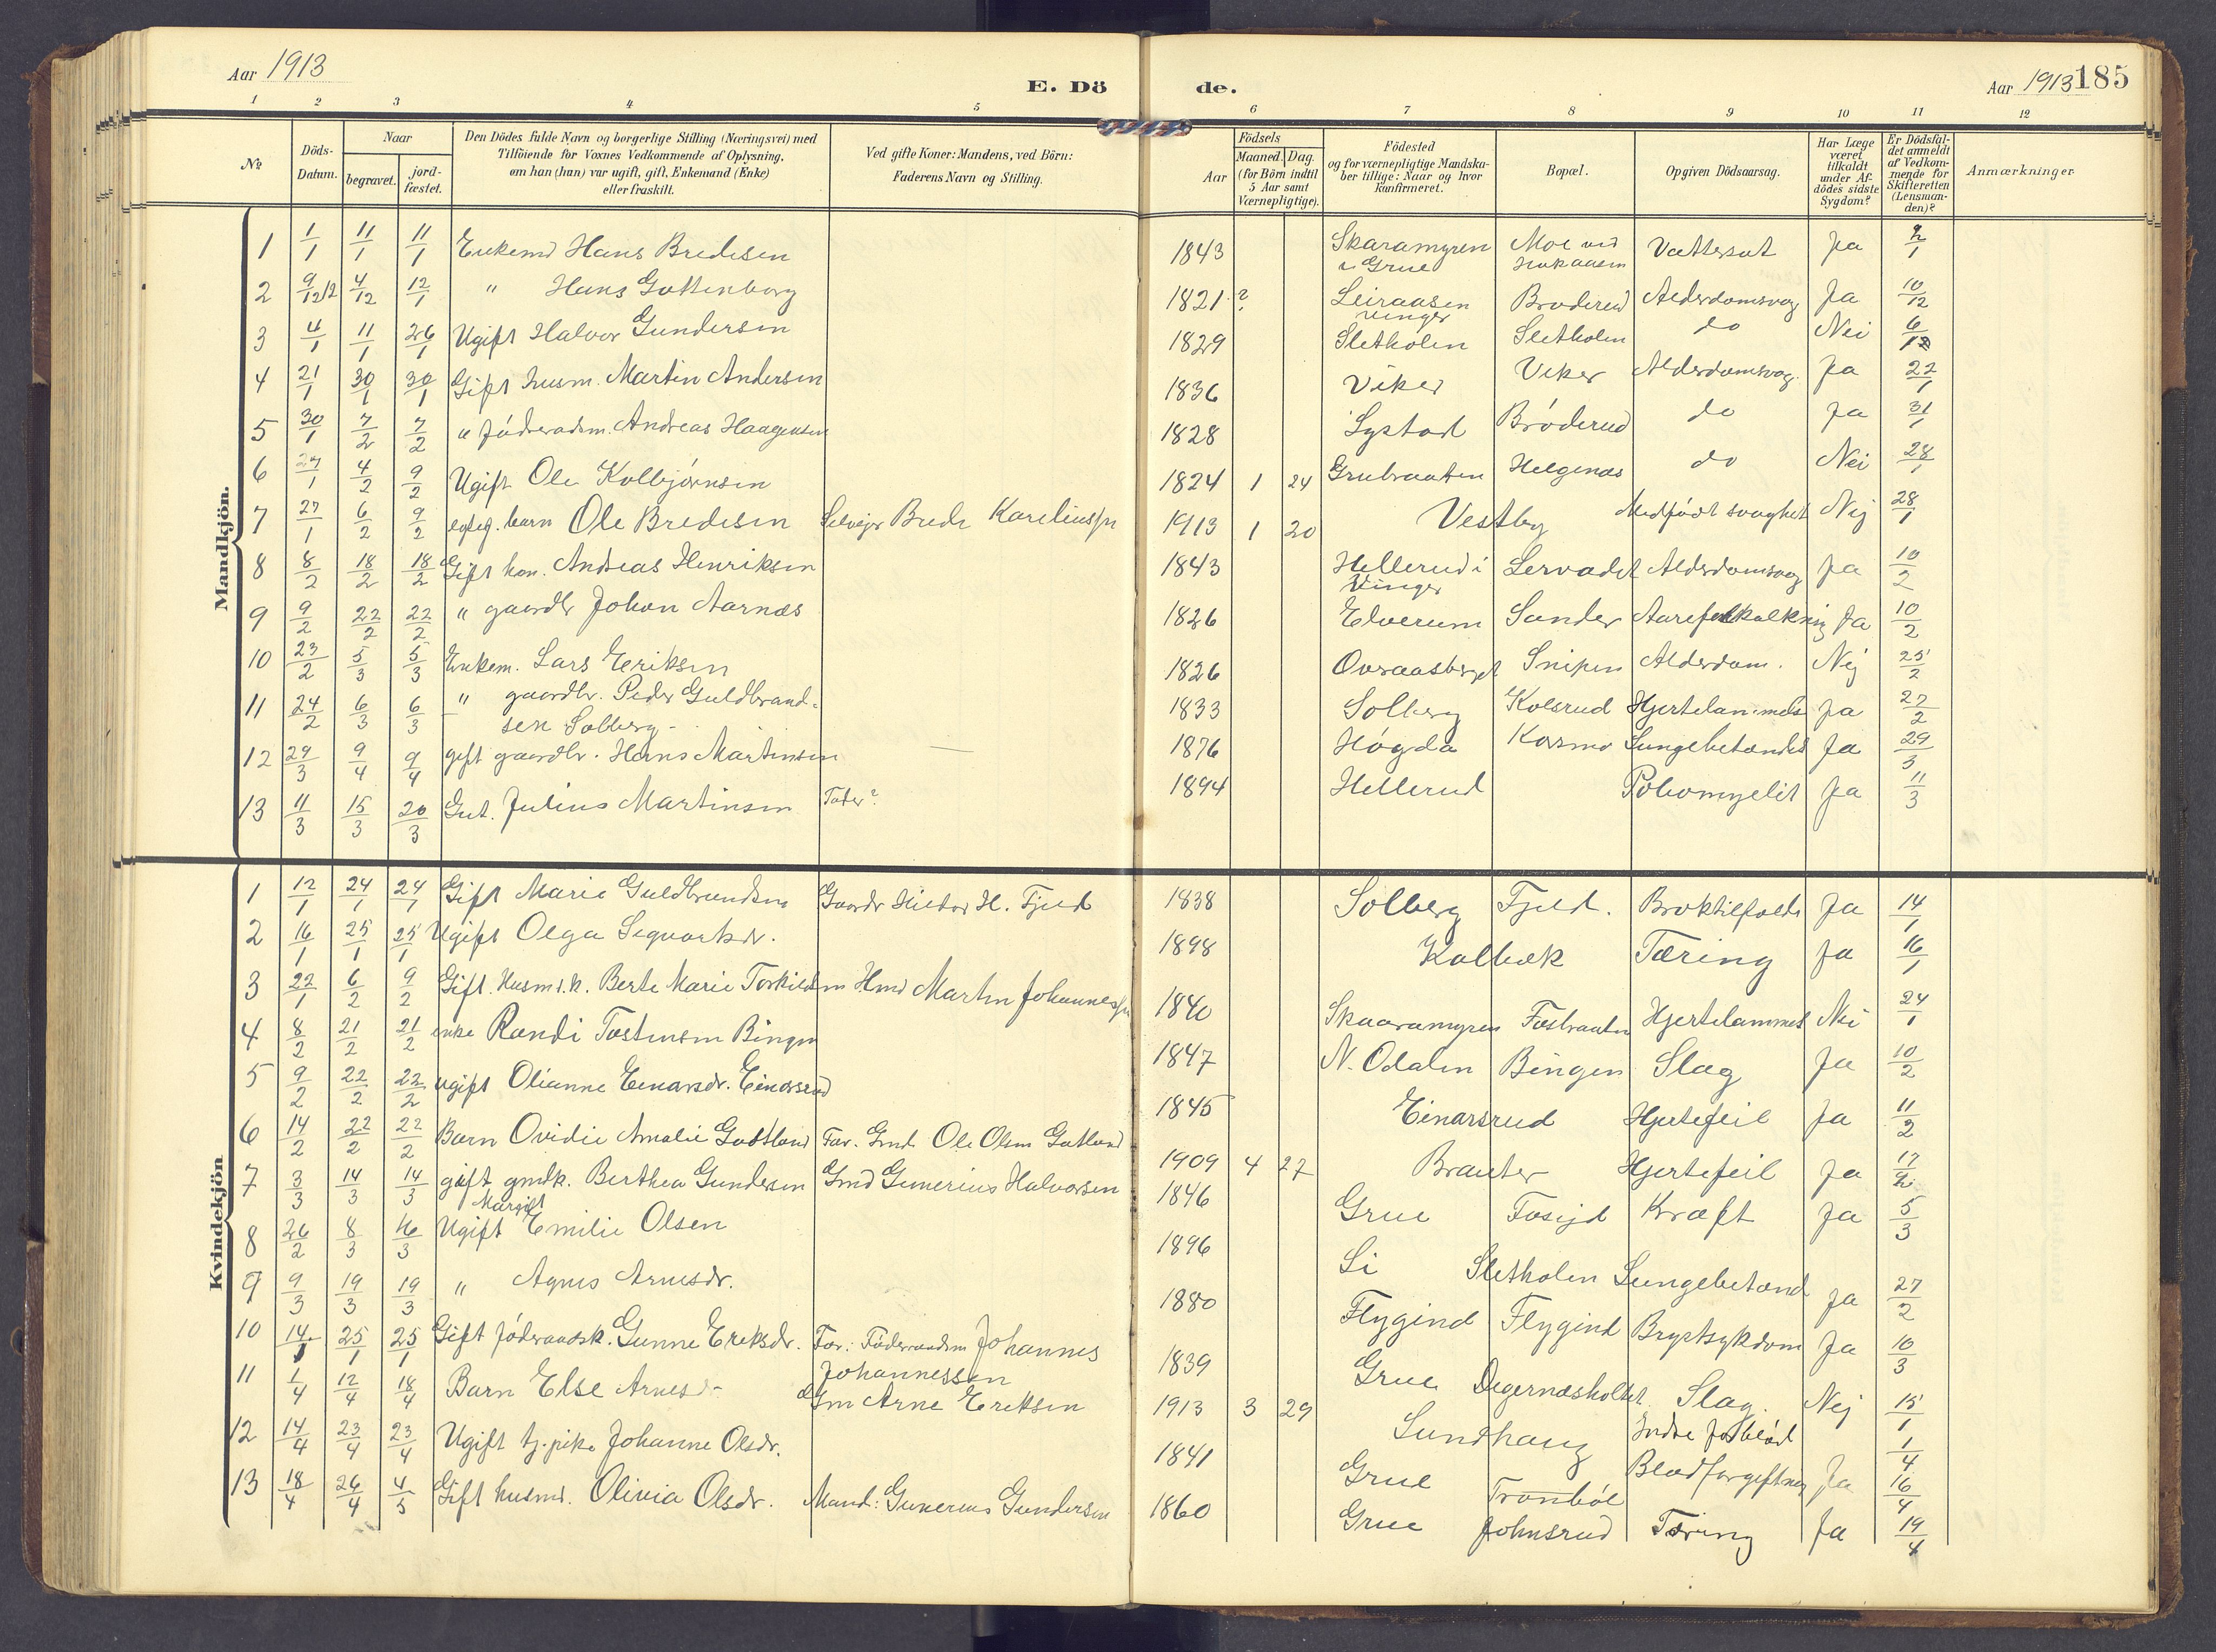 Aar 1913
E. Dö de.
Aar 1913 185
1 2 3 4 5 6 7 8 9 10 11 12
№
Döds-Datum.
Naar
begravet.
jord-fæstet.
Den Dödes fulde Navn og borgerlige Stilling (Næringsvei) med
Tilföiende for Voxnes Vedkommende af Oplysning,
om han (hun) var ugift, gift, Enkemand (Enke)
eller fraskilt.
Ved gifte Koner: Mandens, ved Börn:
Faderens Navn og Stilling.
Aar
Födsels
Maaned. Dag.
(for Börn indtil
5 Aar samt
Værnepligtige).
Födested
og for værnepligtige Mandska-
ber tillige: Naar og hvor
konfirmeret.
Bopæl.
Opgiven Dödsaarsag.
Har Læge
været
tilkaldt
under Af-
dödes sidste
Sygdom?
Er Dödsfal-
det anmeldt
af Vedkom-
mende for
Skifteretten
(Lensman-
den)?
Anmærkninger
Mandkjön.
1 1/1 11/1 11/1 Enkemd Hans Bredesen 1843 Skaramyren i Grue Moe ved Vattersot Ja 2/1
2 9/12 12 4/12 12/1 " Hans Gottenborg 1821 ? Leiraasen Vinger Broderud Alderdomsvag Ja 10/12
3 4/1 11/1 26/1 Ugift Halvor Gundersen 1829 Sletholen Sletholen do Nei 6/12
4 21/1 30/1 30/1 Gift husm. Martin Andersen 1836 Viker Viker Alderdomsvag. Ja 22/1
5 30/1 7/2 7/2 " föderaadsm. Andreas Haagensen 1828 Systad Bröderud do Ja 31/1
6 27/1 4/2 9/2 Ugift Ole Kolbjörnsen 1824 1 24 Grubraaten Helgenæs do Nei 28/1
7 27/1 6/2 9/2 egteg. barn Ole Bredesen Selvejer Brede Kareliussen 1913 1 20 Vestby Medfödt svaghet Nej 28/1
8 8/2 18/2 18/2 Gift kon. Andreas Henriksen 1843 Hellerud i Vinger Lervadet Alderdomsvag Ja 10/2
9 9/2 22/2 22/2 " gaardbr Johan Aarnæs 1826 Elverum Sander Aareforkalkning Ja 10/2
10 23/2 5/3 5/3 Enkem. Lars Eriksen 1826 Ovraasberget Snipen Alderdom. Nej 25/2
11 24/2 6/3 6/3 " gaardbr. Peder Guldbrand-
sen Solberg - 1833 Solberg Kolsrud Hjertelammelse Ja 27/2
12 29/3 9/4 9/4 gift gaardbr. Hans Martinsen 1876 Högda Kosmo Lungebetændels Ja 29/3
13 11/3 15/3 20/3 Gut. Julius Martinsen Fader? 1894 Hellerud Poliomyelit Ja 11/3
Kvindekjön
1 12/1 24/1 24/1 Gift Marie Guldbrandsen Gaardr H. Fjeld 1838 Solberg Fjeld. Broktilfælde Ja 14/1
2 16/1 25/1 25/1 Ugift Olga Sigvartsdr. 1898 Kolbæk Tæring Ja 16/1
3 22/1 6/2 9/2 Gift. Husm.k. Berte Marie Torkildsen Hmd Martin Johannessen 1840 Skaaramyren Fosbraaten Hjertelammels Nei 24/1
4 8/2 21/2 21/2 enke Randi Tostensen Bingen 1847 N. Odalen Bingen Slag Ja 10/2
5 9/2 22/2 22/2 ugift Olianne Einarsdr. Einarsrud 1845 Einarsrud Hjertefeil Ja 11/2
6 14/2 22/2 22/2 Barn Ovidie Amalie Gotland Far. Gmd Ole Olsen Gotland 1909 4 27 Brauter Hjertefeil Ja 17/2
7 3/3 14/3 14/3 gift gmdk. Berthea Gundersen Gmd Gunerius Halvorsen 1846 Grue Fosejd Kræft Ja 5/3
8 26/2 8/3 16/3 Ugift Margit Emilie Olsen 1896 Li Sletholen Lungebetænd Ja 27/2
9 9/3 19/3 19/3 " Agnes Arnesdr. 1880 Flygind Flygind Brystsykdom Ja 10/3
10 14/1 25/1 25/1 Gift föderaadsk. Gunne Eriksdr. Far: Föderaadsm Johannes
Johannessen 1839 Grue Degernæsholtet Slag. Nej 15/1
11 1/4 12/4 18/4 Barn Else Arnesdr Gm Arne Eriksen 1913 3 29 Sundhaug Indre forblöd 1/4
12 14/4 23/4 23/4 Ugift tj.pike Johanne Olsdr. 1841 Grue Tronböl Blodforgiftning Ja 16/4
13 18/4 26/4 4/5 Gift husmd. Olivia Olsdr. Mand: Gunerius Gundersen 1860 Grue Johnsrud Tæring Ja 19/4